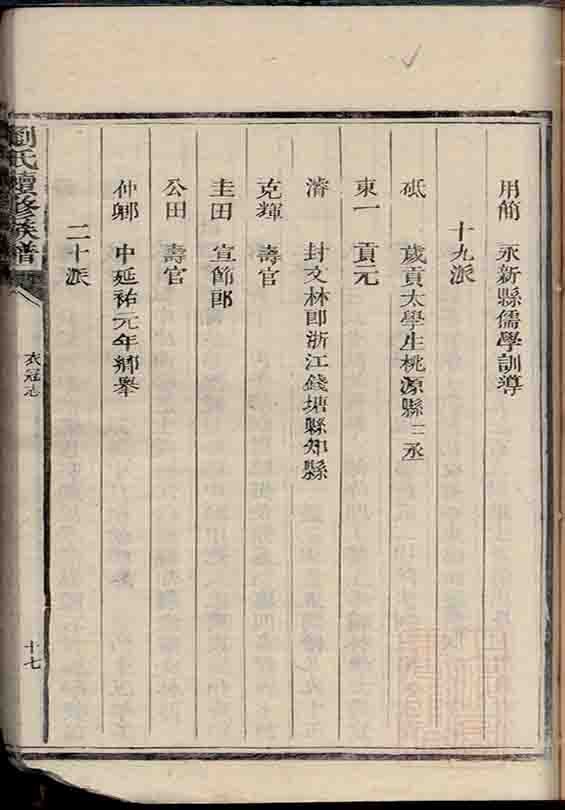 用簡　永新縣儒學訓導
十九派
砥　歲貢太學生桃源縣二丞
東一　貢元
濟　封文林郎浙江錢塘縣知縣
克輝　壽官
圭田　宣節郎
公田　壽官
仲卿　中延祐元年鄉舉
二十派
劉氏續修族譜
衣冠志
十七